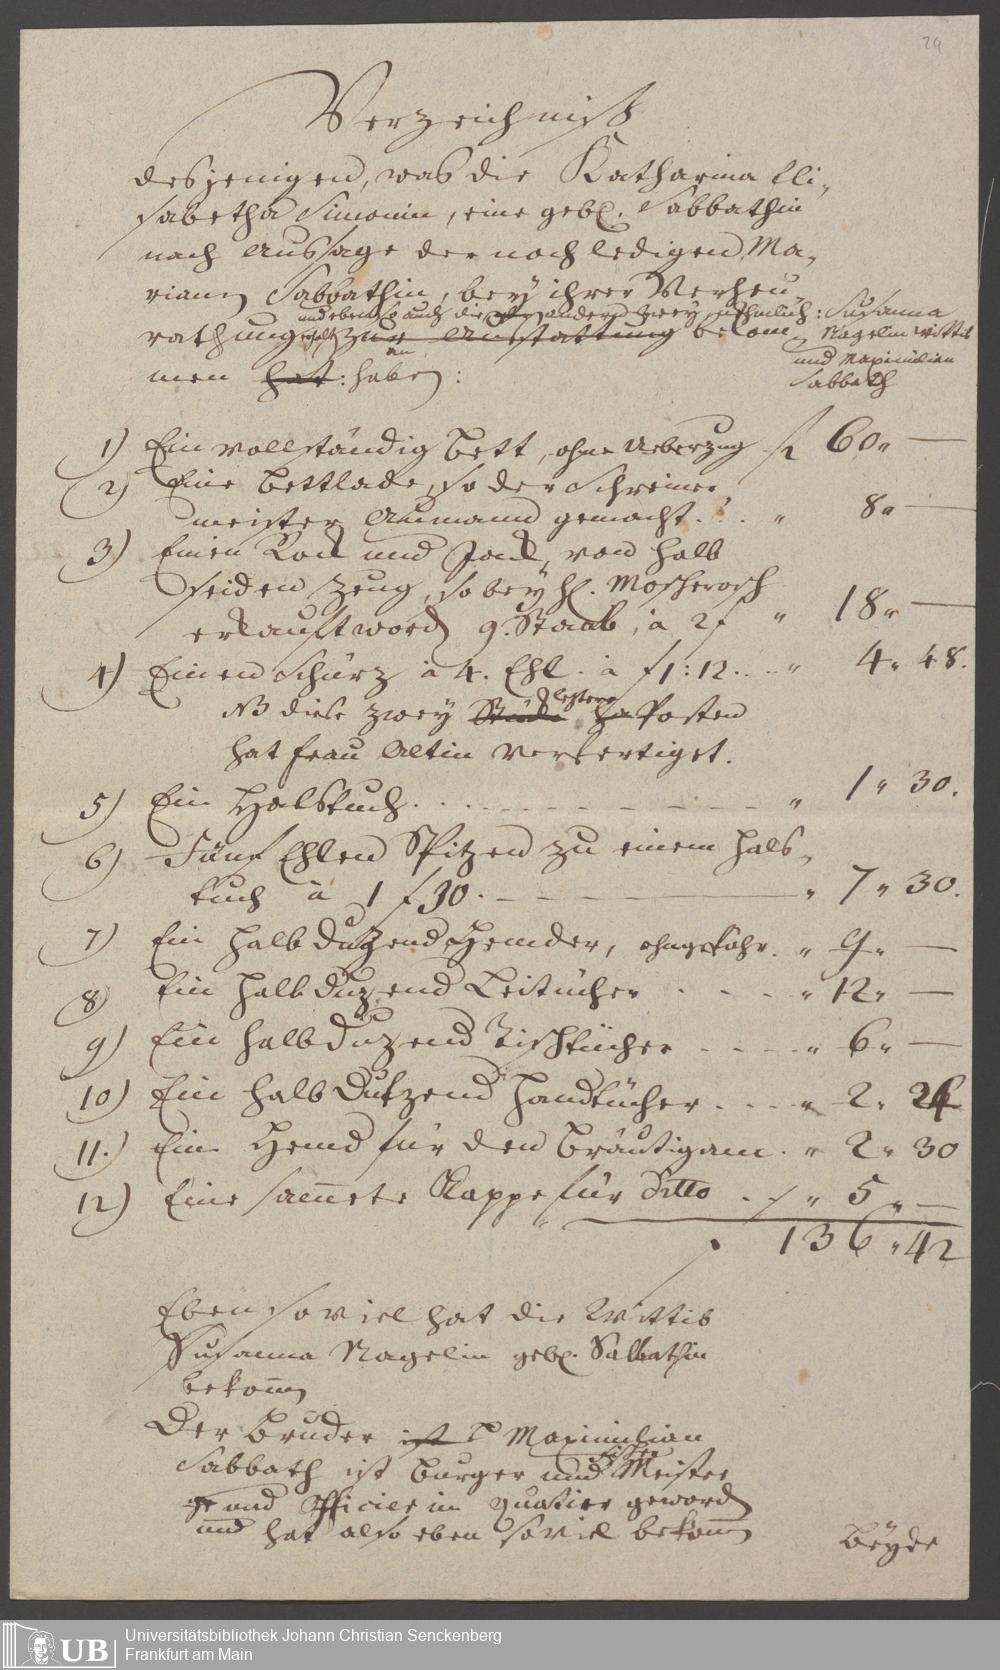 29
Verzeichniß
desjenigen, was die Katharina Eli-
sabetha Simonin, eine geb. Sabbathin
nach Aussage der noch ledigen Ma-
riann Sabbathin, bey ihrer Verheu-
und eben so auch die andern zwey, nehmlich: Susanna
rathung zur Ausstattung bekom- Nagelin Wittib
und Maximilian
men hat: haben: Sabbath
1) Ein vollständig Bett, ohne Ueberzug f 60 " —
2) Eine Bettlade, so der Schreiner
meister Aumann gemacht . . . " 8 " —
3) Einen Rock und Jack, von halb
seiden Zeug, so bey H. Moscherosch
erkauft word 9. Staab, à 2 f " 18 " —
4) Einen Schurz à 4. Ehl. à f 1:12. . . " 4 " 48.
letztere
NB diese zwey Stücke Posten
hat Frau Altin verfertiget.
5) Ein Halstuch . . . " 1 " 30.
6) Fünf Ehlen Spitzen zu einem Hals-
tuch à 1 f 30. " 7 " 30.
7) Ein halb Dutzend Hemder, ohngefähr. " 9 " —
8) Ein halb Duzend Leitücher . . . " 12 " —
9) Ein halb Duzend Tischtücher . . . " 6 " —
10) Ein halb Dutzend Handtücher . . . " 2 " 24
11.) Ein Hemd für den Bräutigam . " 2 " 30
12) Eine samete Kappe für Ditto . " 5 " —
136 " 42
Eben so viel hat die Wittib
Susanna Nagelin geb. Sabbathin
bekomm
Der Bruder ist Maximilian
Sabbath ist Burger und Meister
und Officier im Quatier geword
und hat also eben soviel bekomm
Beyde
UB Universitätsbibliothek Johann Christian Senckenberg
Frankfurt am Main